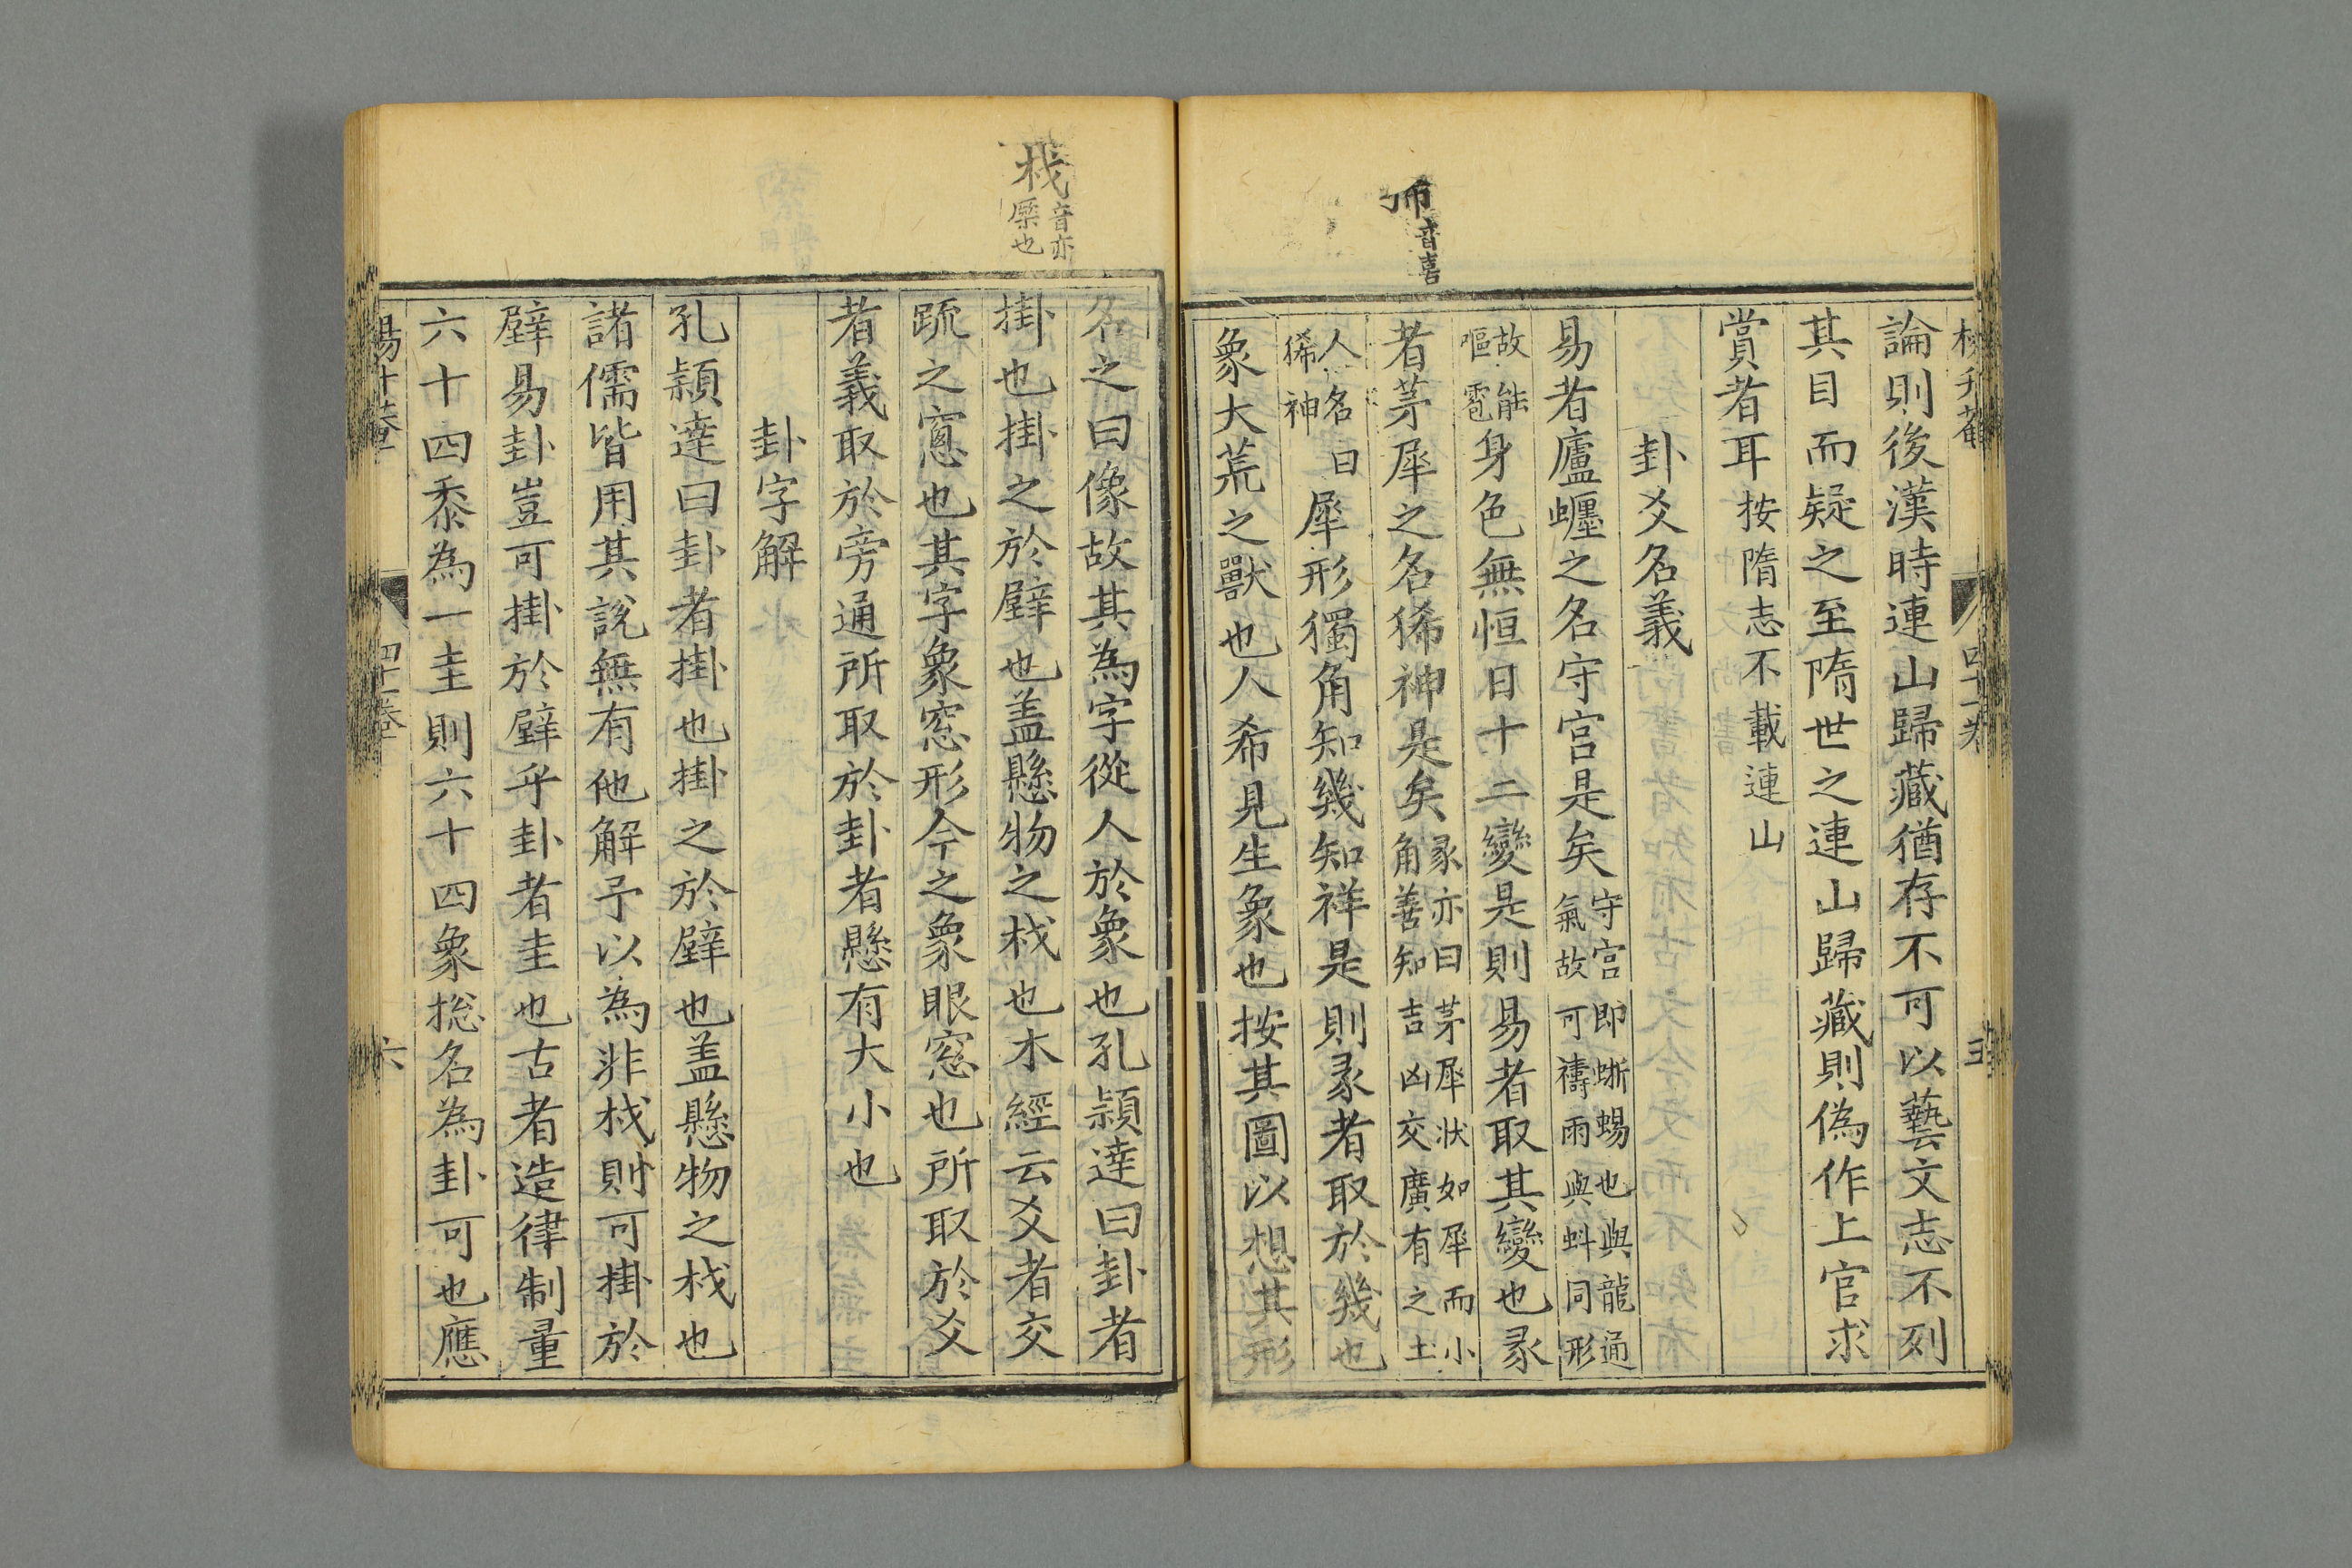 論則後漢時連山歸藏猶存不可以藝文志不列
其目而疑之至隋世之連山歸藏則偽作上官求
賞者耳按隋志不載連山
卦爻名義
易者廬蠦之名守宮是矣守宮即蜥蜴也與龍通氣故可禱雨與蚪同形
故能嘔雹身色無恒日十二變是則易者取其變也彖
者茅犀之名狶神是矣彖亦曰茅犀狀如犀而小角善知吉凶交廣有之土
人名曰狶神犀形獨角知幾知祥是則彖者取於幾也
象大荒之獸也人希見生象也按其圖以想其形
音喜
名之曰像故其為字從人於象也孔頴達曰卦者
掛也掛之於壁也盖懸物之栈也木經云爻者交
䟽之窻也其字象窓形今之象眼窓也所取於爻
者義取於旁通所取於卦者懸有大小也
卦字解
孔頴達曰卦者掛也掛之於壁也盖懸物之栈也
諸儒皆用其説無有他解予以為非栈則可掛於
壁易卦豈可掛於壁乎卦者圭也古者造律制量
六十四黍為一圭則六十四象捴名為卦可也應
栈音亦橜也
四十一卷
六